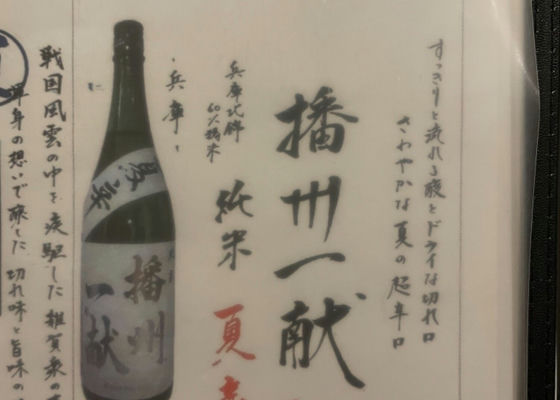 すっきりと流れる酸とドライな切れ口
さわやかな夏の超辛口
播州一献
純米 夏辛
兵庫北錦
60%精米
・兵庫・
夏辛
播州
一献
戦国風雲の中を疾駆した雑賀衆の
渾身の想いで醸した 切れ味と旨味の